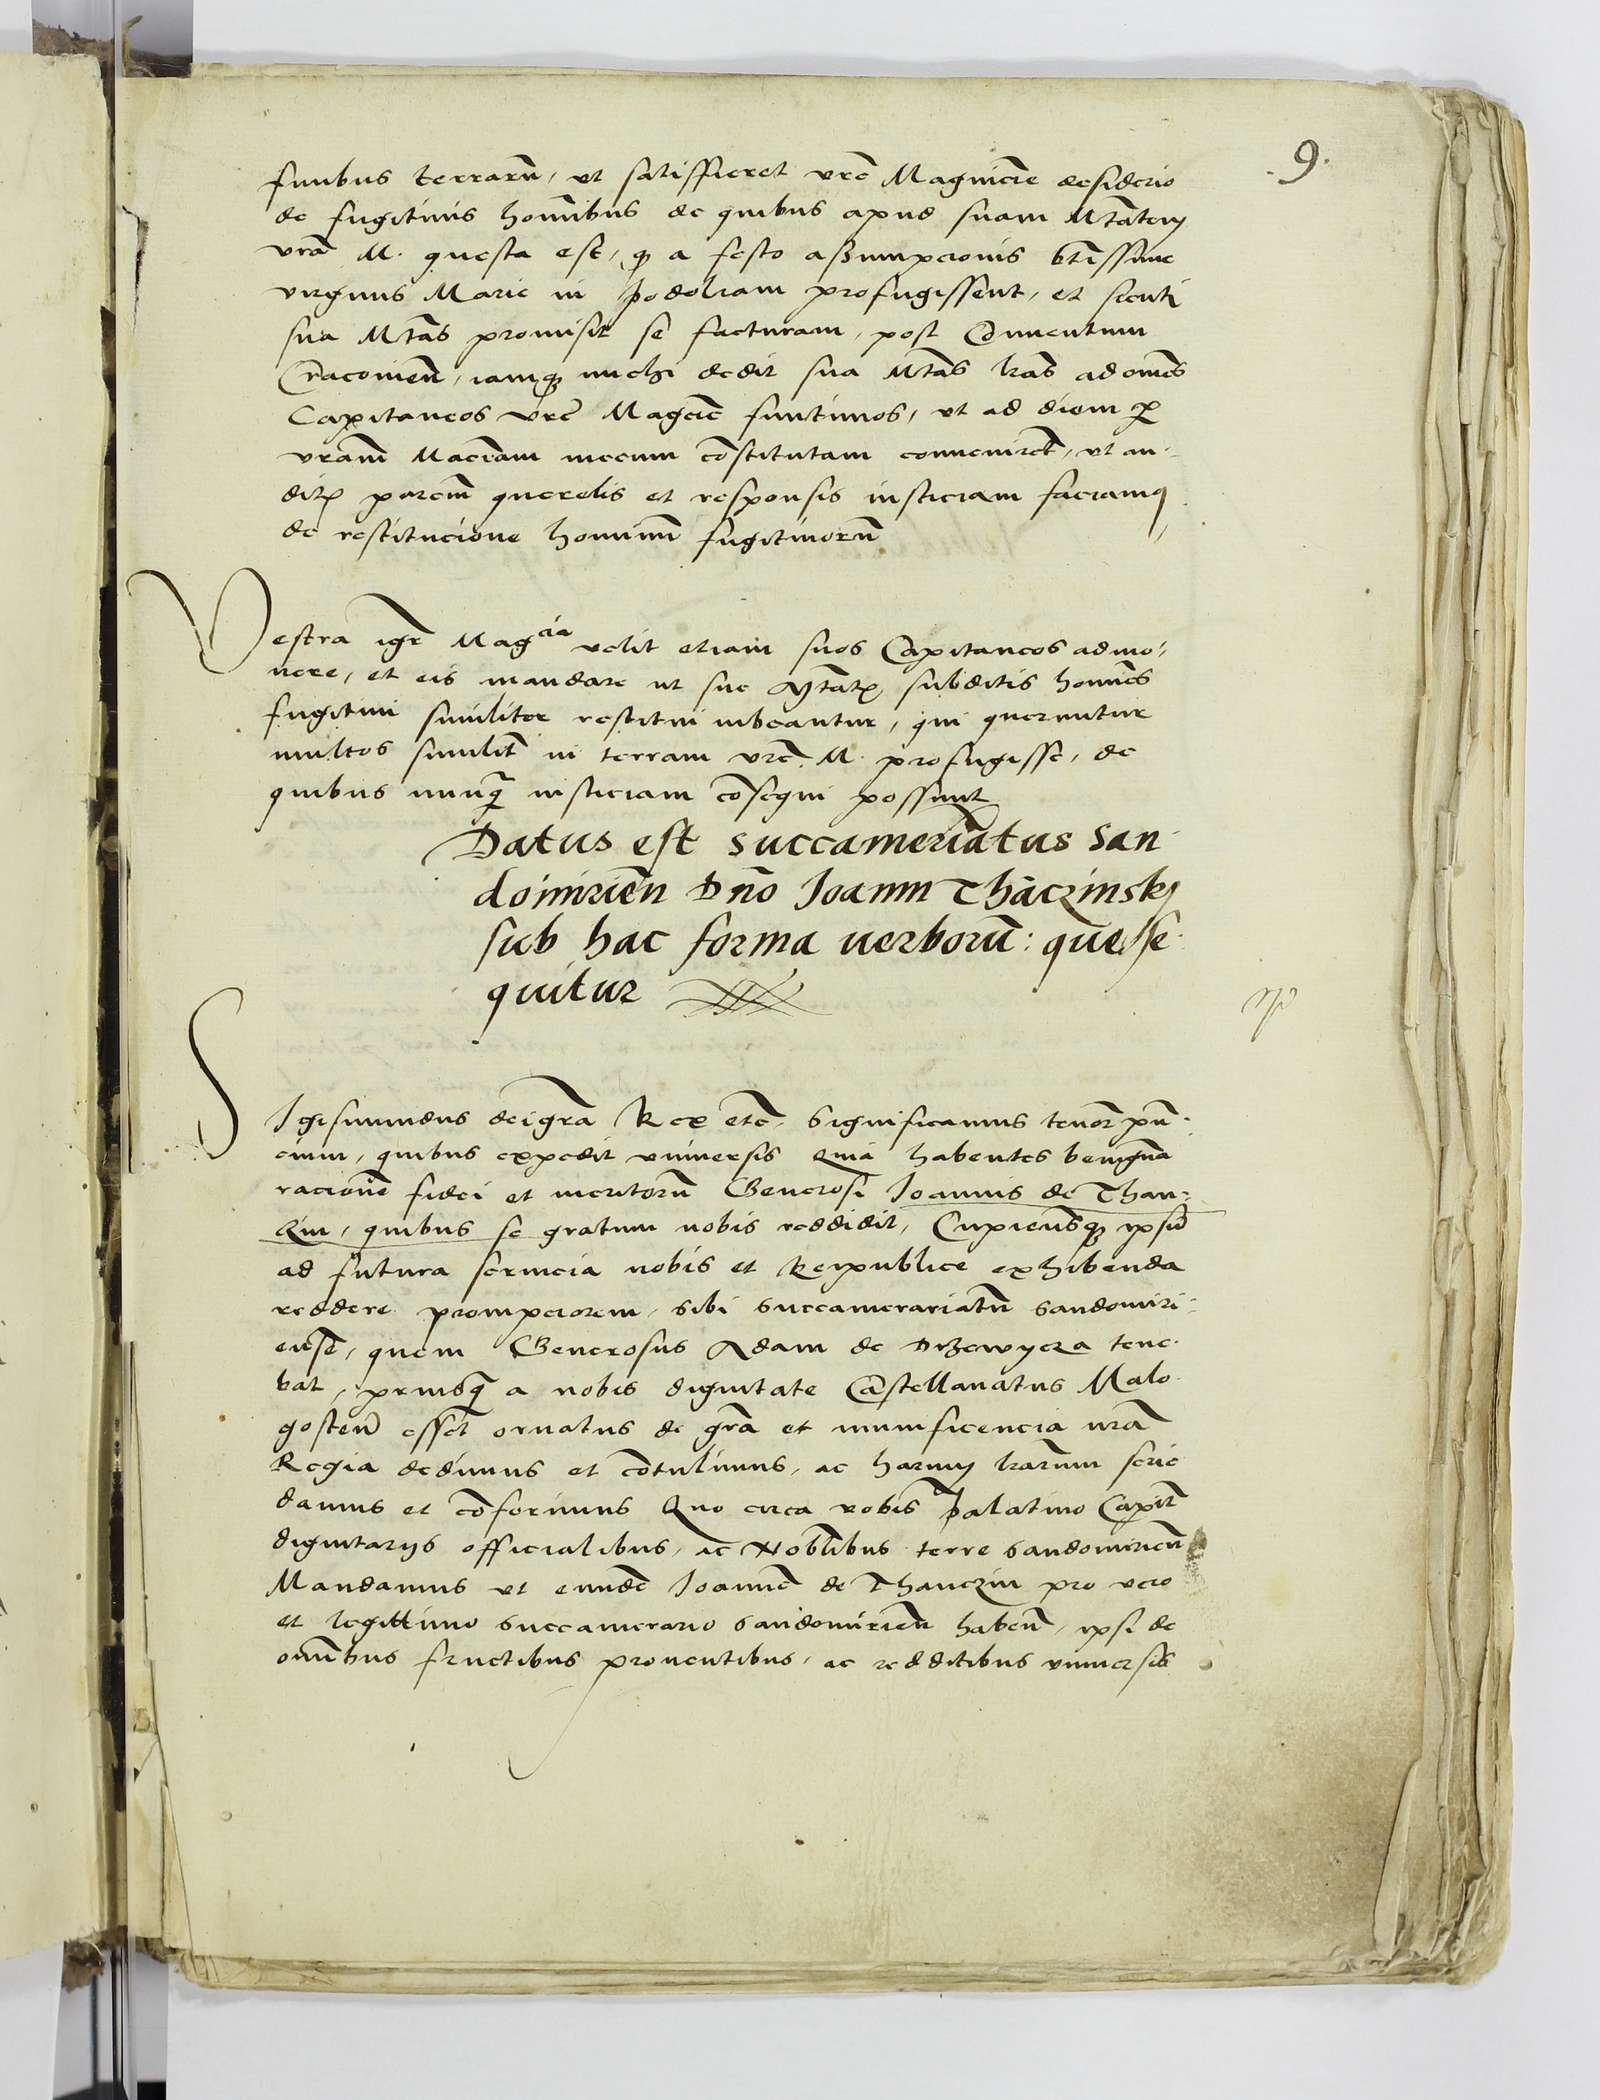 9.
finibus terrarū, ut satisfieret vrē Magnicie desiderio
de fugitiuis hominibus de quibus apud suam Mtātem
vrā M. questa est, q a festo assumpcionis btissime
virginis Marie in podoliam profugissent, et sicuti
sua Mtās promisit se facturam, post Conuentum
Cracouieñ, iamq michi dedit sua Mtās lrās ad omēs
Capitaneos vrē Magcie finitimos, ut ad diem p
vram̄ Macīam mecum cōstitutam conuenirēt, ut au-
ditis parcium querelis et responsis iusticiam faciamq
de restitucione hominū fugitiuorū
Vestra igr̄ Magcia velit etiam suos Capitaneos admo-
nere, et eis mandare ut sue Mtātis subditis homines
fugitiui similiter restitui iubeantur, qui queruntur
multos similit̄ in terram vrē. M. profugisse, de
quibus nunq̄ iusticiam cōsequi possunt
Datus est succameriatus san-
domirieñ Dño Ioanni Thāczinsky
sub hac forma uerborū: que se-
quitur
SIgismundus dei grā Rex etc̄. Significamus tenor̄ pñ-
cium, quibus expedit vniuersis Quia habentes benignā
racionē fidei et meritorū Generosi Ioannis de Than-
czin, quibus se gratum nobis reddidit, Cupiensq̄ ipsū
ad futura seruicia nobis et Reipublice exhibenda
reddere prompciorem, sibi succamerariatū sandomiri-
ensē, quem Generosus Adam de Drzewycza tene-
bat, priusq̄ a nobis dignitate Castellanatus Malo-
gosteñ essēt ornatus de grā et munificencia nrā
Regia dedimus et cōtulimus, ac harum lrarum serie
damus et cōferimus Quo circa vobis Palatino Capit̄
dignitarijs officialibus, ac Nobilibus terre sandomirieñ
Mandamus ut eundē Ioannē de Thanczin pro vero
et legittimo succamerario sandomirieñ habeñ, ipsi de
omībus fructibus prouentibus, ac redditibus vniuersis